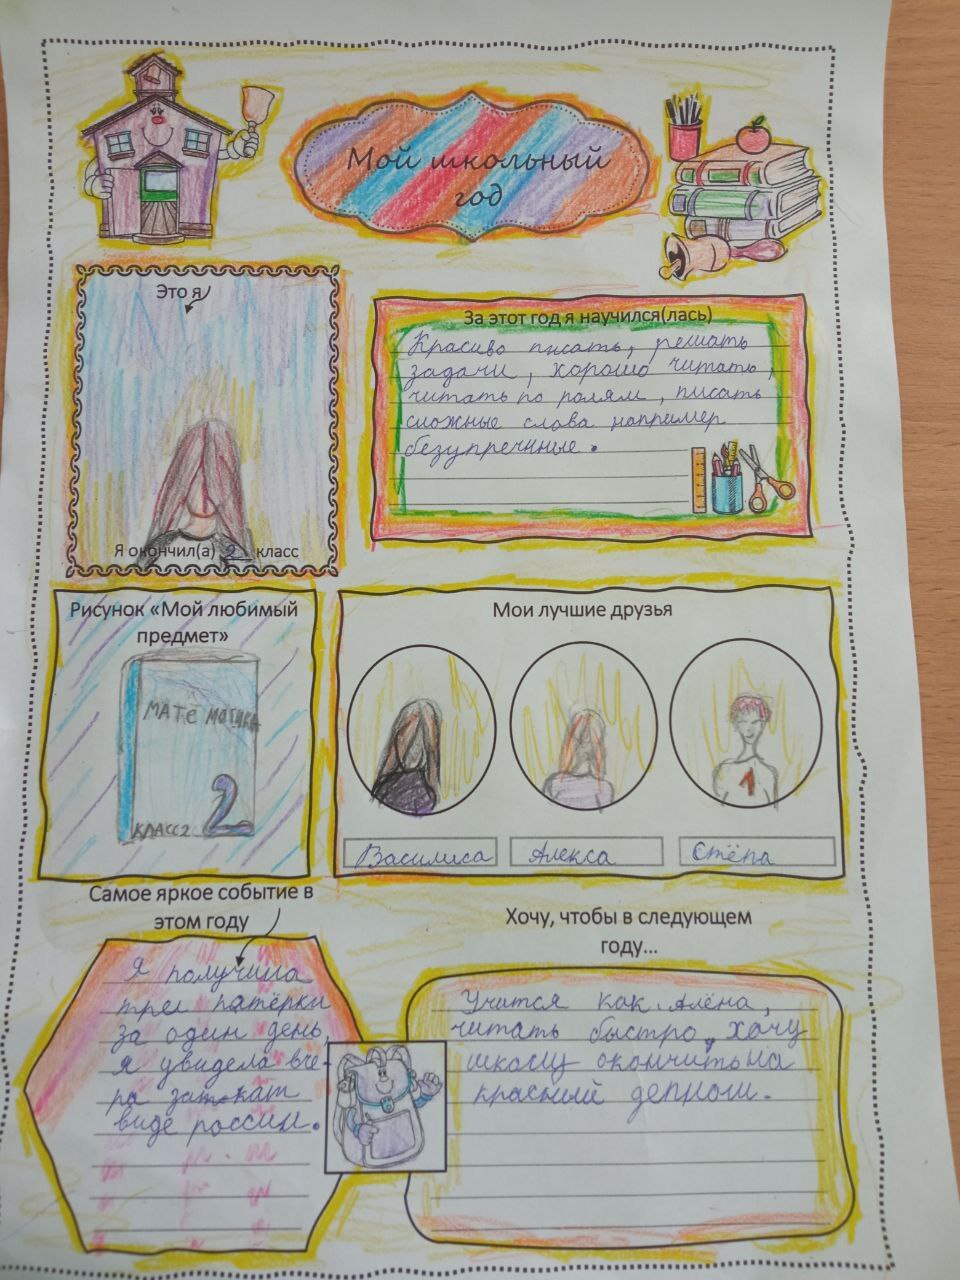 Мой школьный
год
Это я
Я окончил(а) 2 класс
За этот год я научился(лась)
Красиво писать, решать
задачи, хорошо читать,
читать по ролям, писать
сложные слова например
безупречнные.
Рисунок «Мой любимый
предмет»
МАТЕМАТИКА
2
КЛАСС 2
Мои лучшие друзья
1
Василиса
Алекса
Стёпа
Самое яркое событие в
этом году
Я получила
три пятёрки
за один день,
я увидела вче-
ра закат
виде россии.
Хочу, чтобы в следующем
году...
Учится как Алёна,
читать быстро, хочу
школу окончить на
красный деплом.